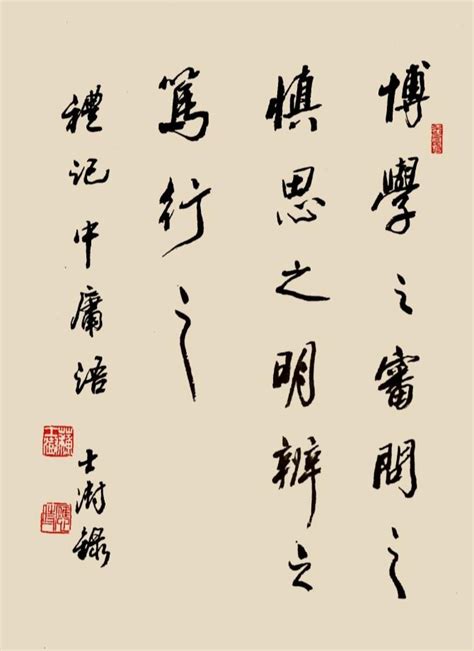 博學之審問之
慎思之明辨之
篤行之
禮記中庸語
士澍錄